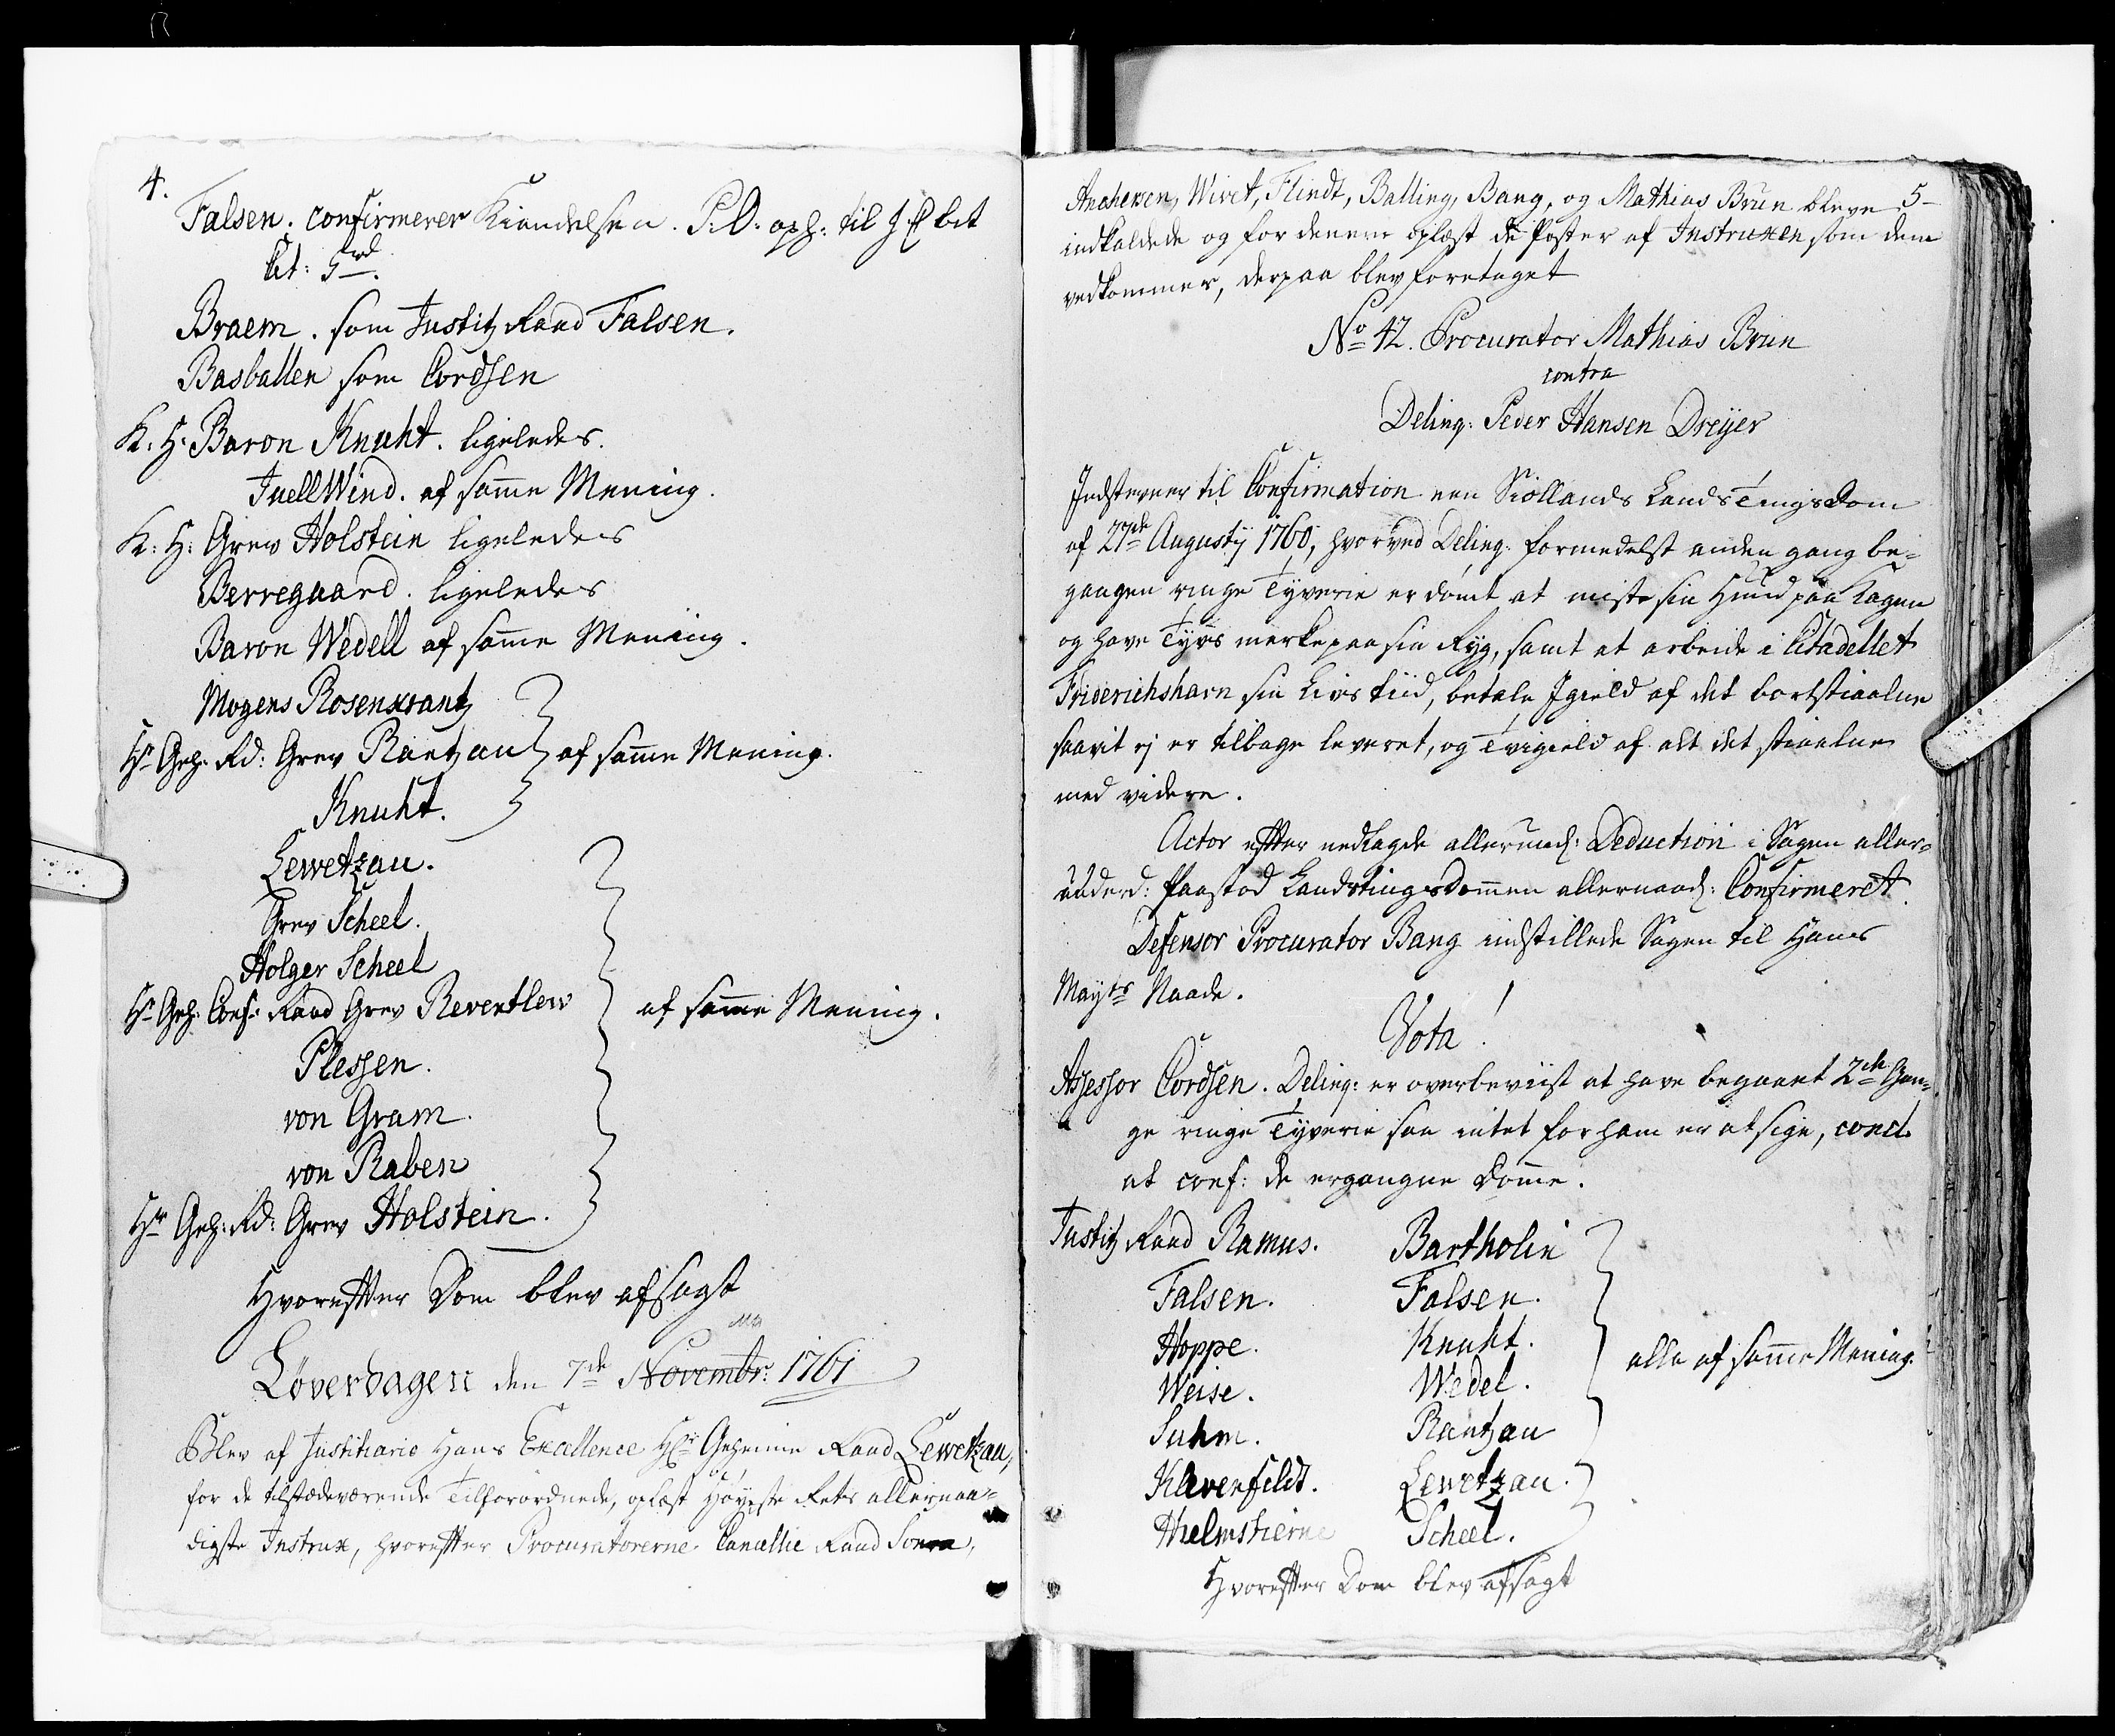 4.
Falsen. confirmerer Kiendelsen. P: O: oph: til J
bet: 5 rd.
Braem. som Justitz Raad Falsen.
Basballen som Cordsen
K: H: Baron Knuht. ligeledes.
Juell Wind. af samme Mening.
K: H: Grev Holstein ligeledes
Berregaard. ligeledes
Baron Wedell af samme Mening.
Mogens Rosenkrantz
Hr. Geh: Rd: Grev Rantzau } af samme Mening.
Knuht.
Lewetzau.
Grev Scheel.
Holger Scheel
Hr. Geh: Conf: Raad Grev Reventlew } af samme Mening.
Plessen.
von Gram.
von Raben
Hr Geh: Rd: Grev Holstein.
Hvorefter Dom blev afsagt
Löverdagen den 7de Novembr: 1761
Blev af Justitiario Hans Excellence Hr Geheime Raad Lewetzau,
for de tilstædeværende Tilforordnede, oplæst Höyeste Rets allernaa-
digste Instrux, hvorefter Procuratorerne Cancellie Raad
5
Anchersen, Wivet, Flindt, Balling, Bang, og Mathias Brun bleve
indkaldede og for dennem oplæst de Poster af Instruxen som dem
vedkommer, derpaa blev foretaget
No 42. Procurator Mathias Brun
contra
Delinq: Peder Hansen Dreÿer
Indstevner til Confirmation een Siöllands Lands Tings Dom
af 27de Augustÿ 1760, hvorved Delinq: formedelst anden gang be-
gangen ringe Tyverie er dömt at miste sin Hud paa Kagen
og have Tyvs merke paa sin Ryg, samt at arbeide i Citadellet
Friderichshavn sin Livs tiid, betale Igield af det bortstiaalne
saavit ej er tilbage leveret, og Tvigield af alt det stiaalne
med videre.
Actor efter nedlagde allerund: Deduction i Sagen aller-
underd: Paastod Landstings Dommen allernaad: Confirmeret.
Defensor Procurator Bang indstillede Sagen til Hans
Mayts Naade.
Vota!
Assessor Cordsen. Delinq: er overbeviist at have begaaet 2de Gan-
ge ringe Tyverie saa intet for ham er at sige, concl.
at conf: de ergangne Domme.
Justitz Raad Ramus. Bartholin
Falsen. Falsen.
Hoppe. Knuht.
Weise. Wedel. } alle af samme Mening.
Suhm. Rantzau
Klevenfeldt. Lewetzau.
Hielmstierne Scheel.
Hvorefter Dom blev afsagt